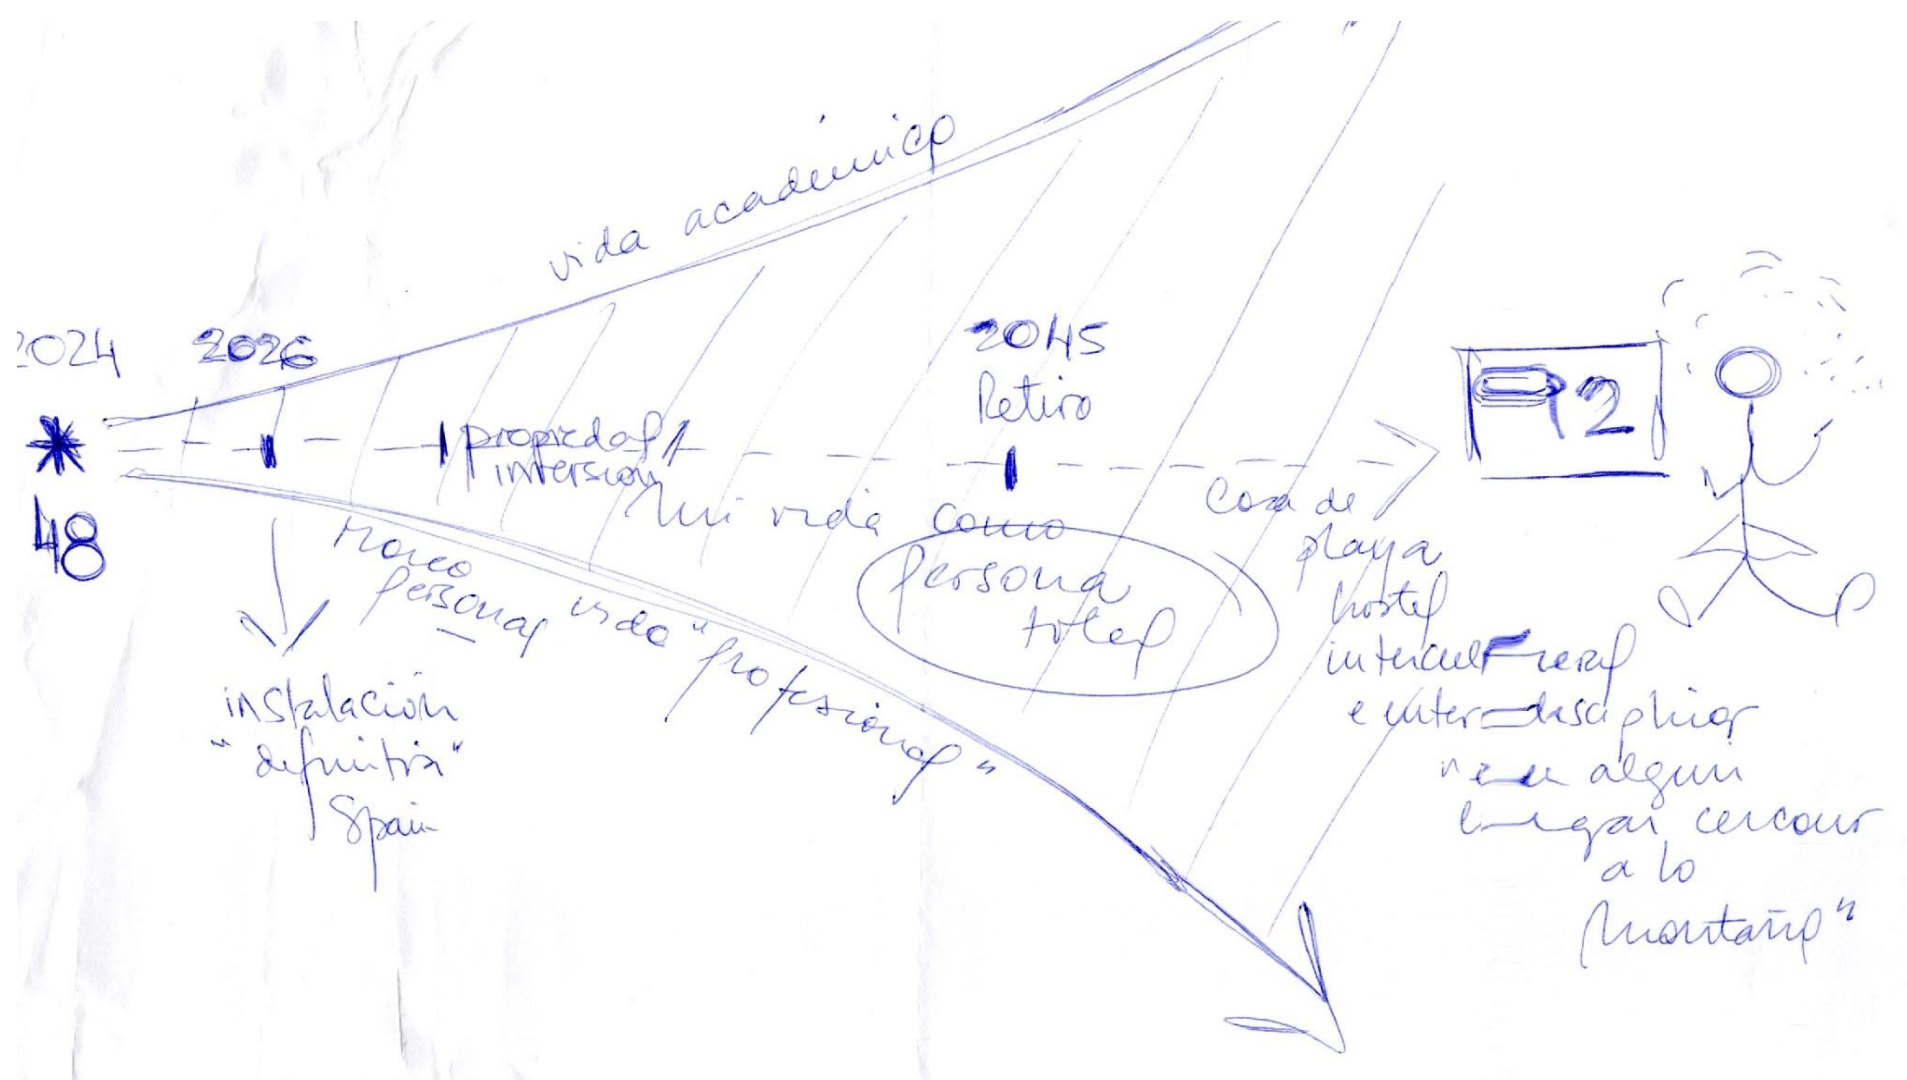 vida académica
2024
2026
48
propiedad /
inversión
2045
Retiro
Mi vida como
persona
total
Marco
personal
vida "profesional"
instalación
"definitiva"
Spain
92
Casa de
playa
hostel
intercultural
e inter-disciplinar
en algun
lugar cercano
a la
montaña"